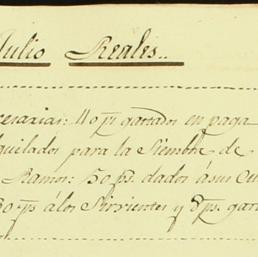 Julio Reales..
cesarias: 110 ps gastados en paga
quilados para la Siembra de
Ramos: 50 ps. dados á sus
30 ps á los Sirvientes y 8 ps. gas